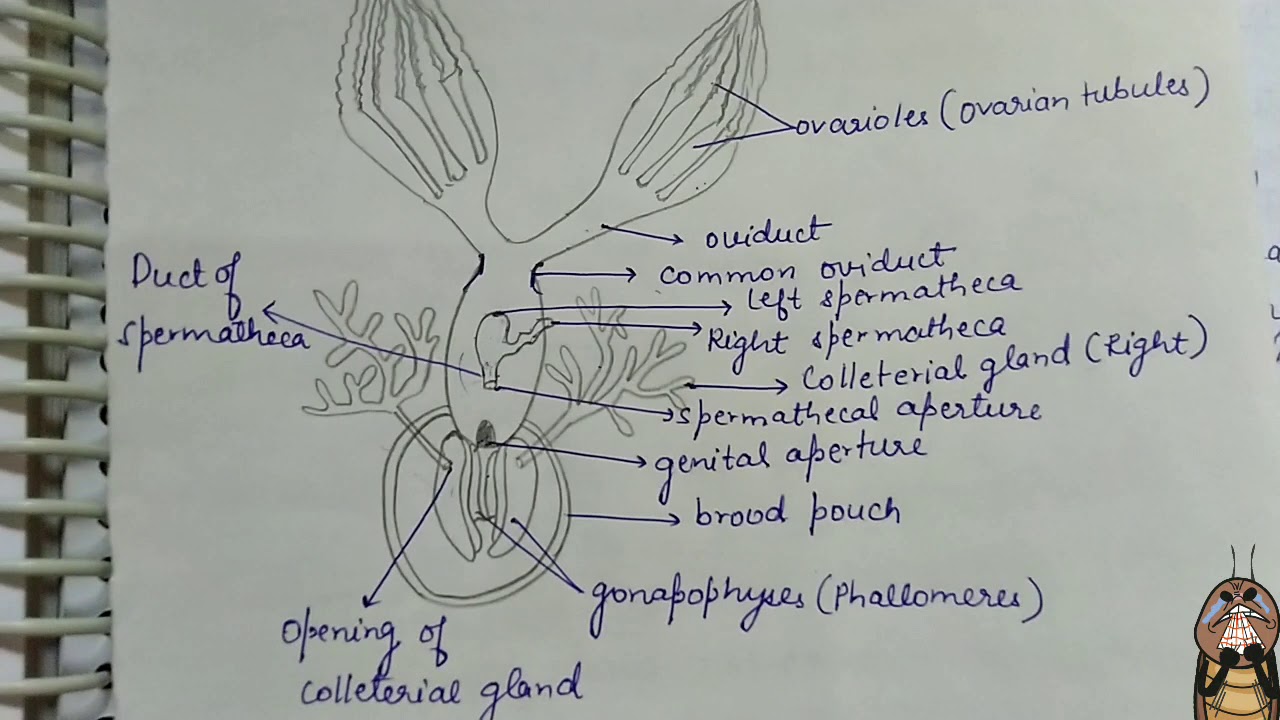 ovarioles (ovarian tubules)
oviduct
common oviduct
left spermatheca
Right spermatheca
Colleterial gland (Right)
spermathecal aperture
genital aperture
brood pouch
gonapophyses (Phallomeres)
Duct of
spermatheca
Opening of
Colleterial gland